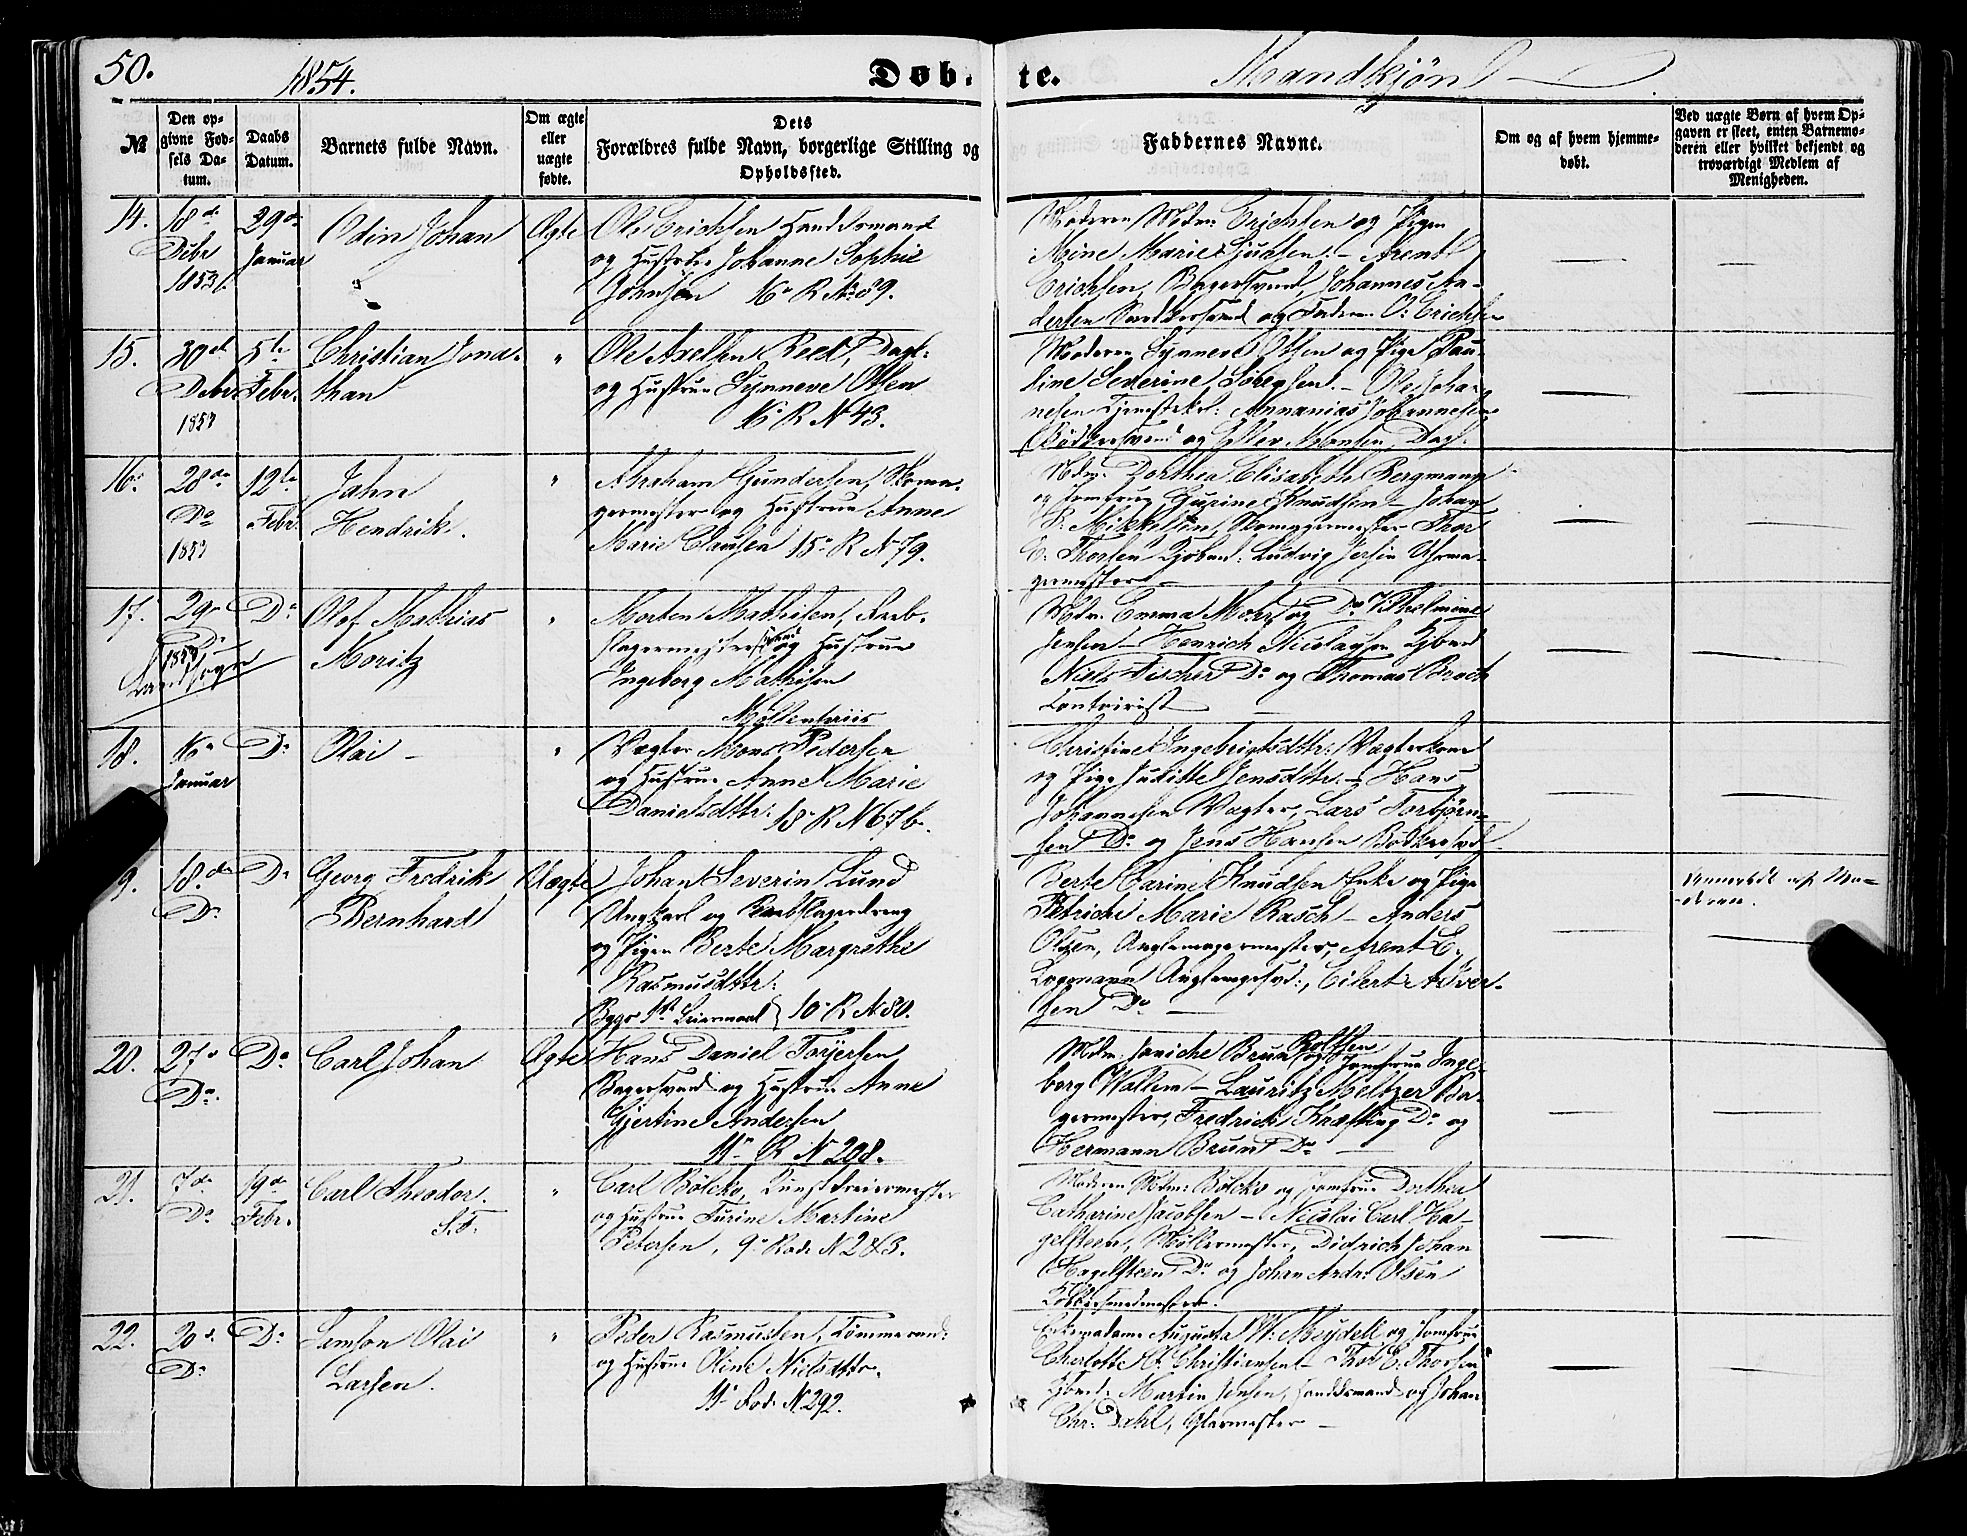 50.
1854.
Døb-
te.
Mandkjøn
№
Den op-
givne Fød-
sels Da-
tum.
Daabs
Datum.
Barnets fulde Navn.
Om ægte
eller
uægte
fødte.
Dets
Forældres fulde Navn, borgerlige Stilling og
Opholdssted.
Faddernes Navne.
Om og af hvem hjemme-
døbt.
Ved uægte Børn af hvem Op-
gaven er skeet, enten Barnemo-
deren eller hvilket bekjendt og
troværdigt Medlem af
Menigheden.
14.
18de
Debr
1853
29de
Januar
Odin Johan
Ægte
Ole Erichsen Handelsmand
og Hustrue Johanne Sophie
Johnsen 16 R № 89.
Moderen Mdm: Erichsen og Pigen
Marie - Arent
Erichsen, Bagersvend, Johannes An-
dersen og Faderen O: Erichsen
15.
30de
Debr
1853
5te
Febr.
Christian Jona-
than
"
Ole Axelsen Dagk:
og Hustrue Synneve Olsen
16 R N 43.
Moderen Synneve Olsen og Pige Pau-
line Severine Sørensen. - Ole Johan-
nesen Tjenestekrl: Annanias Johannesen
Bødkersvend og Dagk.
16.
28de
Do
1853
12te
Febr.
Jahn
Hendrik.
"
Abraham Gundersen, Skoma-
germester og Hustrue Anne
Marie Clausen 15 R N 79.
Mdm: Dorthea Elisabeth Bergmann
og Jomfrue Gurine Knudsen - Johan
P. Mikkelsen, Skomagermester Thor
E. Thorsen Kjøbmd: Ludvig Uhrma-
germester -
17.
29
Do
1853
Landsogn
Do
Olof Mathias
Moritz
"
Morten Mathisen, Reeb-
slagermestersvend og Hustrue
Ingeborg Mathisen
Møllenpriis
Mdm: Emma Mohr og Do Vilhelmine
Jensen - Henrich Nicolaysen Kjbmd
Niels Fischer Do og Thomas Broch
Contoirist
18.
16
Januar
Do
Olai -
"
Vægter Mons Pedersen
og Hustrue Anne Marie
Danielsdttr: 18 R N 67 b.
Christine Ingebrigtsdttr: Vægterkone
og Pige Judithe Jensdttr. - Hans
Johannesen Vægter, Lars Torbjørn-
sen Do og Jens Hansen Bødkersvd
9.
18de
Do
Do
Georg Fredrik
Bernhard
Uægte
Johan Severin Lund
Ungkarl og Reebslagerdreng
og Pigen Berte Margrethe
Rasmusdttr:
Begges 1ste Leiermaal 10 R N 80.
Berte Carine Knudsen Enke og Pige
Petriche Marie Rasch - Anders
Olsen, Anglemagermester, Arent L.
Logmann Anglemagersvd:, Eilert A Iver-
sen Do -
Anmeldt af Mo-
deren.
20.
27
Do
Do
Carl Johan
Ægte
Hans Daniel Torjersen
Bagersvend og Hustrue Anne
Gjertine Andersen
11 R N 208.
Mdm: Janiche Brun og Jomfrue Inge-
borg Wallem - Lauritz Meltzer Ba-
germester, Fredrick Kræfting Do og
Hermann Brun Do
21.
7de
Do
19de
Febr.
Carl Theodor.
"
Carl Bölcko, Kunstdreiermester
og Hustrue Turine Martine
Petersen, 9 Rode N 283.
Moderen Mdm: Bölcko og Jomfrue Dorthea
Catharine Jacobsen - Nicolai Carl Ha-
gelsteen, Møllermester, Didrich Johan
Hagelsteen Do og Johan Andr: Olsen
22.
20
Do
Do
Samson Olai
Larsen.
"
Peder Rasmussen, Tømmermd:
og Hustrue Oline Nielsdttr.
11 Rod. N 292.
Enkemadame Augusta W: Meydell og Jomfrue
Charlotte C. Christiansen - Thor E. Thorsen
Kjbmd: Martin Jensen, Handelsmand og Johan
Chr: Dahl, Glarmester -